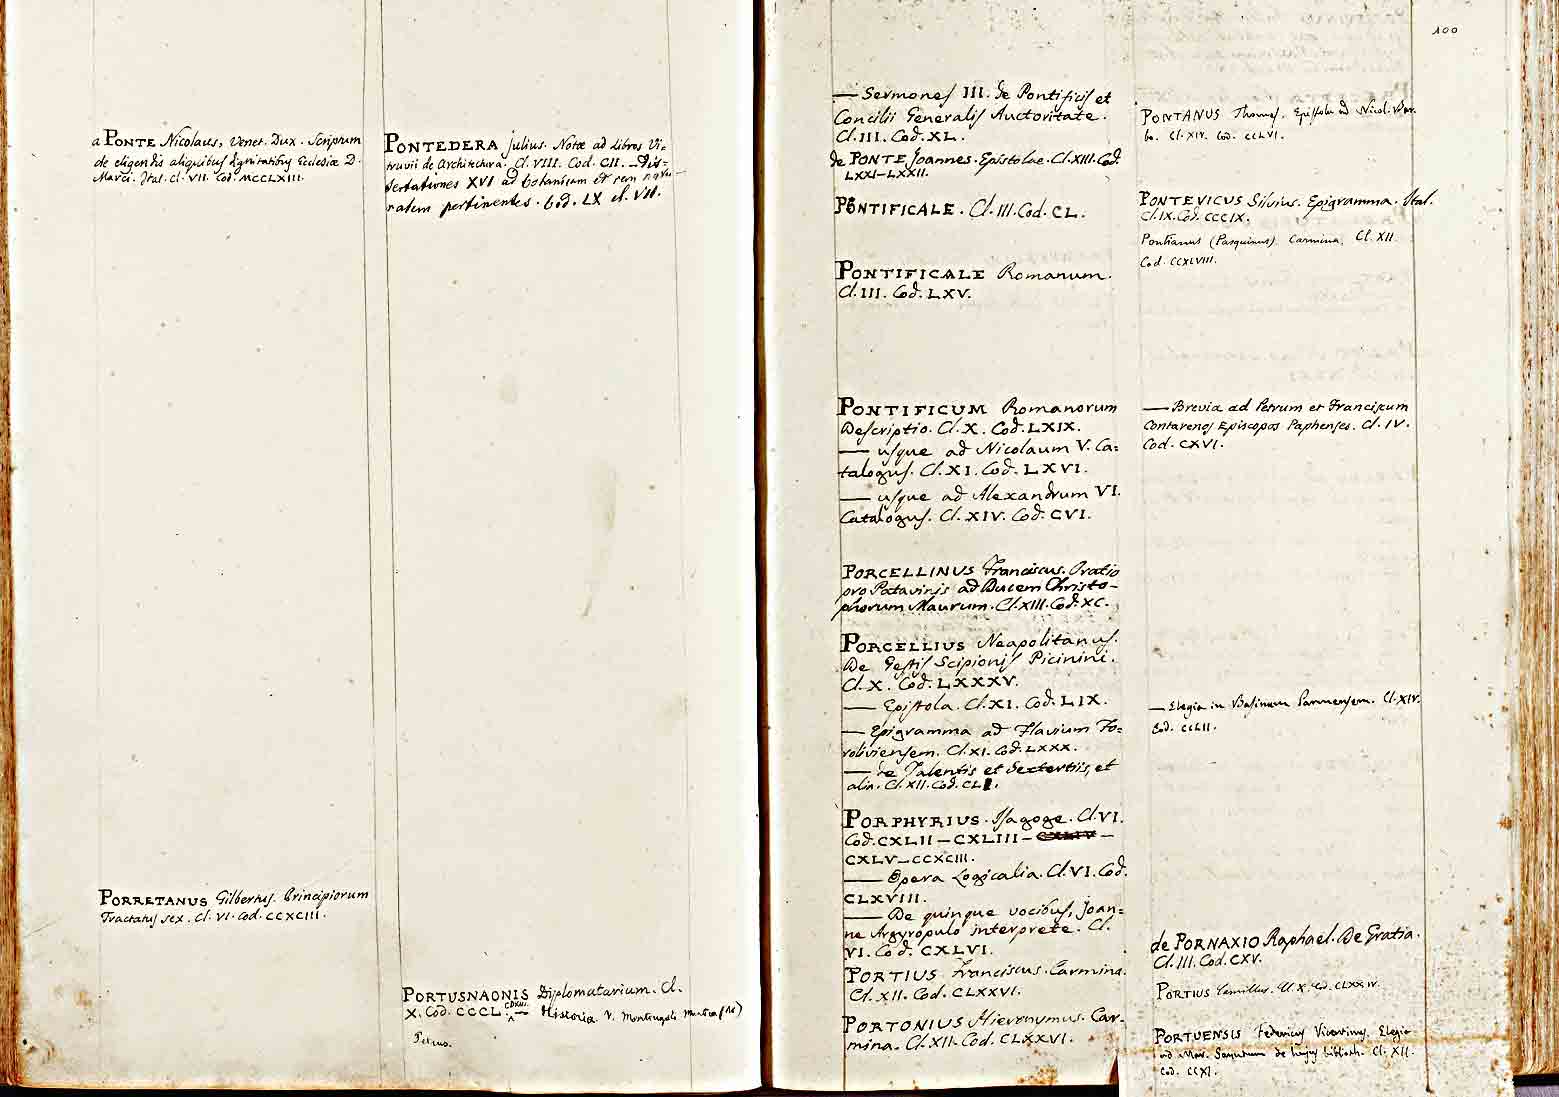 a PONTE Nicolaus, Venet. Dux. Scriptum
de eligendis aliquibus dignitatibus Ecclesiæ D.
Marci. Ital. Cl. VII. Cod. MCCLXIII.
PORRETANUS Gilbertus. Principiorum
Tractatus sex. Cl. VI. Cod. CCXCIII.
PONTEDERA Julius. Notæ ad Libros Vi=
truvii de Architectura. Cl. VIII. Cod. CII. — Dis-
sertationes XVI ad botanicam et rem natu-
ralem pertinentes. Cod. LX cl. VII.
PORTUSNAONIS Diplomatarium. Cl.
X. Cod. CCCL. — Historia. V.
Petrus.
100
— Sermones III. de Pontificis et
Concilii Generalis Auctoritate.
Cl. III. Cod. XL.
de PONTE Joannes. Epistolae. Cl. XIII. Cod.
LXXI–LXXII.
PONTIFICALE. Cl. III. Cod. CL.
PONTIFICALE Romanum.
Cl. III. Cod. LXV.
PONTIFICUM Romanorum
Descriptio. Cl. X. Cod. LXIX.
— usque ad Nicolaum V. Ca=
talogus. Cl. XI. Cod. LXVI.
— usque ad Alexandrum VI.
Catalogus. Cl. XIV. Cod. CVI.
PORCELLINUS Franciscus. Oratio
pro Patavinis ad Ducem Christo-
phorum Maurum. Cl. XIII. Cod. XC.
PORCELLIUS Neapolitanus.
De Gestis Scipionis Picinini.
Cl. X. Cod. LXXXV.
— Epistola. Cl. XI. Cod. LIX.
— Epigramma ad Flavium Fo=
roliviensem. Cl. XI. Cod. LXXX.
— de Talentis et Sextertiis, et
alia. Cl. XII. Cod. CL.
PORPHYRIUS. Isagoge. Cl. VI.
Cod. CXLII — CXLIII — CXLIV —
CXLV — CCXCIII.
— Opera Logicalia. Cl. VI. Cod.
CLXVIII.
— De quinque vocibus, Joan=
ne Argyropulo interprete. Cl.
VI. Cod. CXLVI.
PORTIUS Franciscus. Carmina.
Cl. XII. Cod. CLXXVI.
PORTONIUS Hieronymus. Car-
mina. Cl. XII. Cod. CLXXVI.
PONTANUS Thomas. Epistola ad Nicol. Bar.
bo. Cl. XIV. Cod. CCLVI.
PONTEVICUS Silvius. Epigramma. Ital.
Cl. IX. Cod. CCCIX.
Pontianus (Pasquinus) Carmina. Cl. XII.
Cod. CCXLVIII.
— Brevia ad Petrum et Franciscum
Contarenos Episcopos Paphenses. Cl. IV.
Cod. CXVI.
— Elegia in Basinum Parmensem. Cl. XIV.
Cod. CCLII.
de PORNAXIO Raphael. De Gratia.
Cl. III. Cod. CXV.
PORTIUS Camillus. Cod. CLXXIV.
PORTUENSIS Federicus Vicentinus. Elegia
ad Mar. Sanutum de biblioth. Cl. XII.
Cod. CCXI.